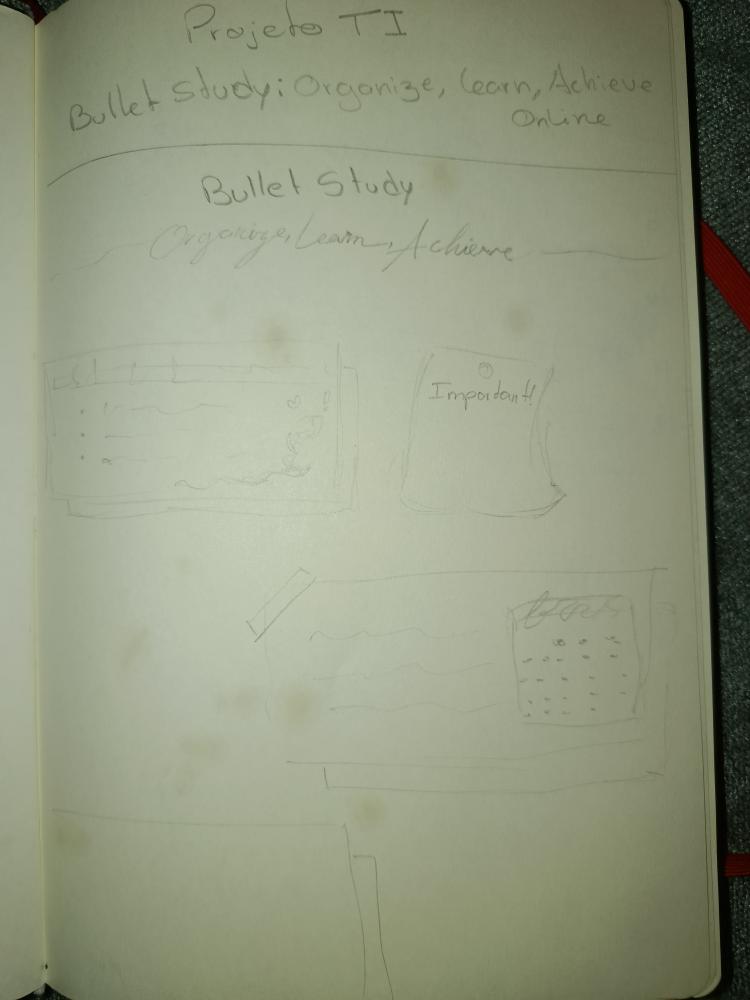 Projeto TI
Bullet Study: Organize, Learn, Achieve
Online
Bullet Study
Organize, Learn, Achieve
Important!